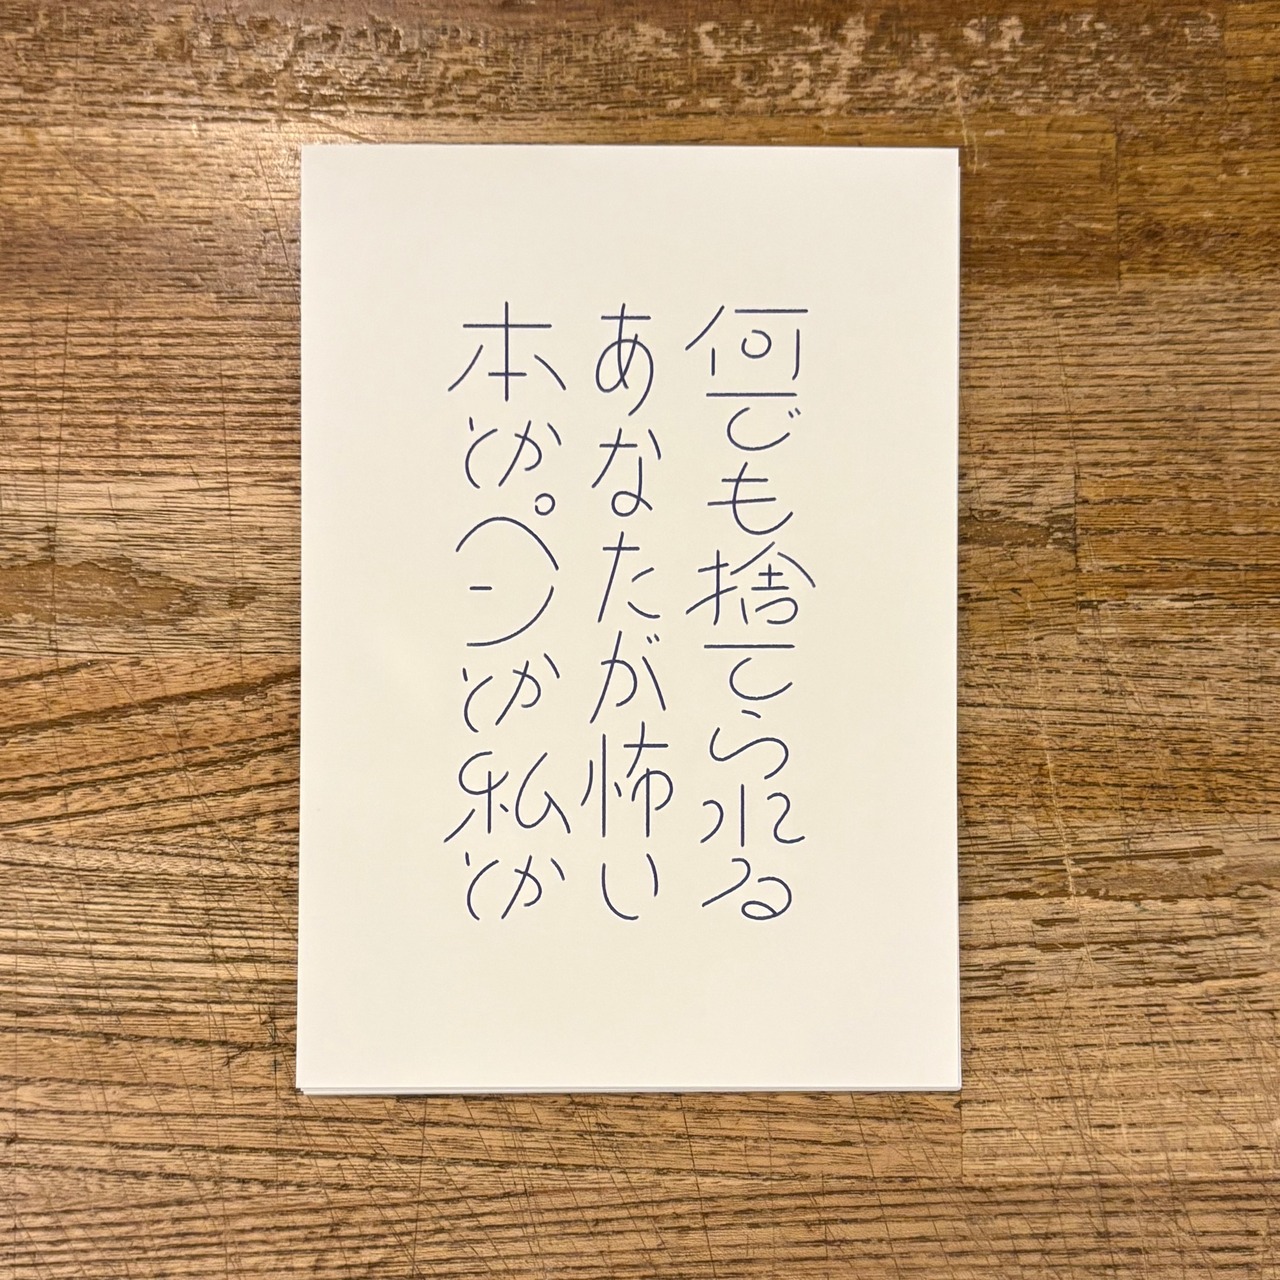 何でも捨てられる
あなたが怖い
本とかペンとか私とか